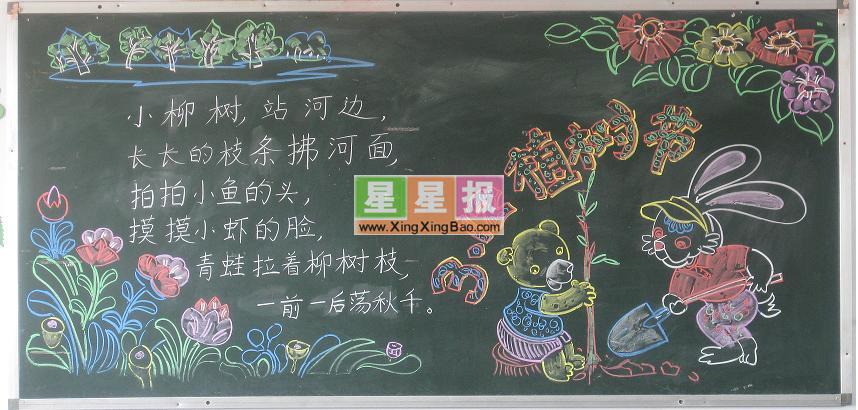 小柳树,站河边,
长长的枝条拂河面,
拍拍小鱼的头,
摸摸小虾的脸,
青蛙拉着柳树枝,
一前一后荡秋千。
植树节
星星报
www.XingXingBao.com